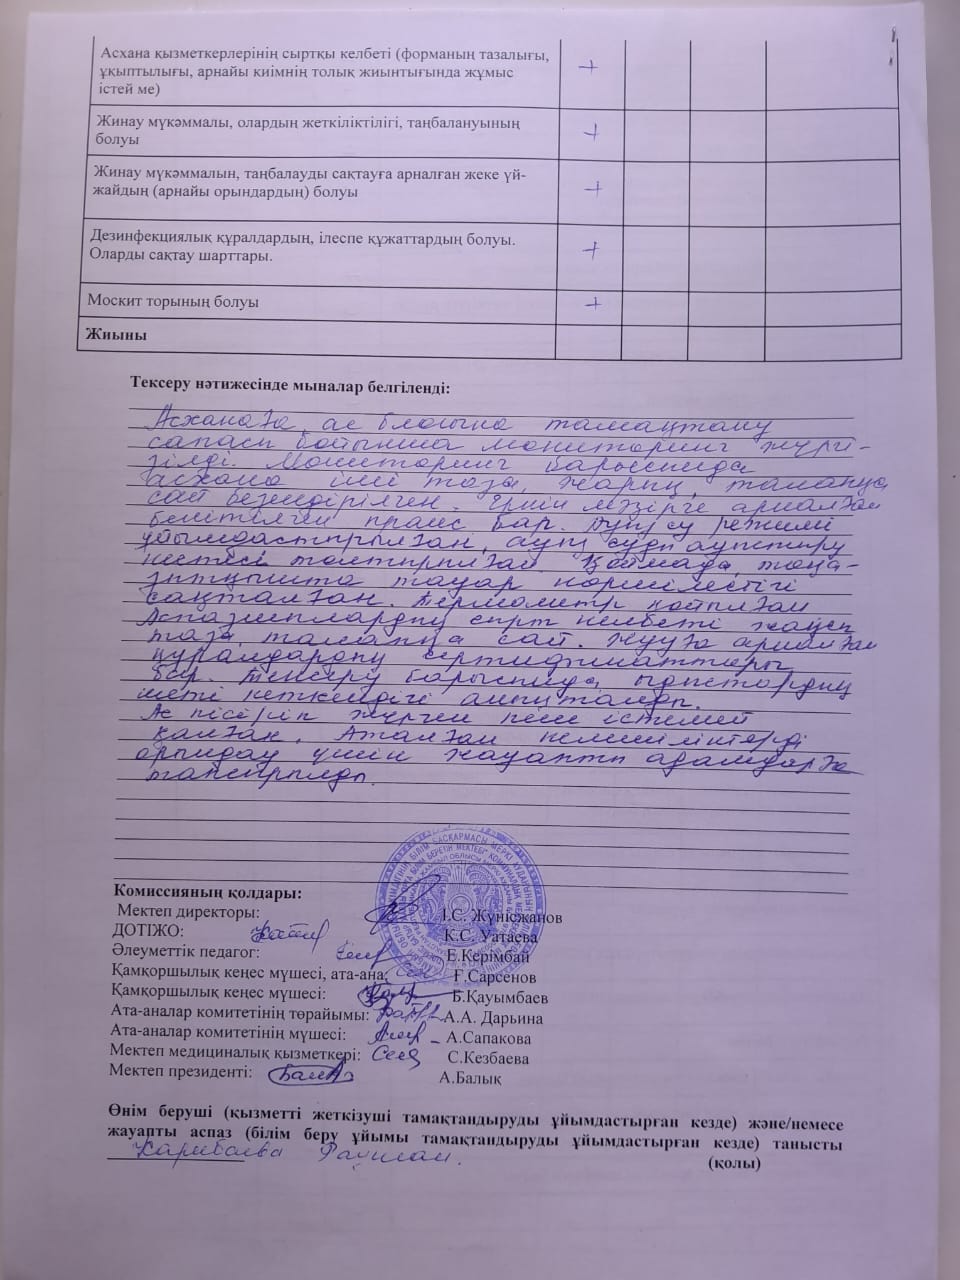 Асхана қызметкерлерінің сыртқы келбеті (форманың тазалығы,
ұқыптылығы, арнайы киімнің толық жиынтығында жұмыс
істей ме)
+
Жинау мүкәммалы, олардың жеткіліктілігі, таңбалануының
болуы
+
Жинау мүкәммалын, таңбалауды сақтауға арналған жеке үй-
жайдың (арнайы орындардың) болуы
+
Дезинфекциялық құралдардың, ілеспе құжаттардың болуы.
Оларды сақтау шарттары.
+
Москит торының болуы
+
Жиыны
Тексеру нәтижесінде мыналар белгіленді:
Асханаға, ас блогына тамақтану
сапасы бойынша мониторинг жүргі-
зілді. Мониторинг барысында
асхана іші таза, жарық, талапқа
сай безендірілген. Үшін мәзірге арналған
бекітілген прайс бар. Ауыз су режимі
ұйымдастырылған, ауыз суды ауыстыру
кестесі толтырылған. Қоймада, тоңа-
зытқышта тауар көршілестігі
сақталған. Термометр қойылған
Аспазшылардың сырт келбеті жақсы
таза, талапқа сай. Жууға арналған
құралдардың сертификаттары
бар. Тексеру барысында, ыдыстардың
шеті кеткендігі анықталды.
Ас пісіріп жүрген пеш істемей
қалған. Аталған кемшіліктерді
орындау үшін жауапты адамдарға
тапсырылды.
Комиссияның қолдары:
Мектеп директоры: І.С. Жүнісжанов
ДОТІЖО: К.С. Уатаева
Әлеуметтік педагог: Е.Керімбай
Қамқоршылық кеңес мүшесі, ата-ана: Ғ.Сарсенов
Қамқоршылық кеңес мүшесі: Б.Қауымбаев
Ата-аналар комитетінің төрайымы: А.А. Дарьина
Ата-аналар комитетінің мүшесі: А.Сапакова
Мектеп медициналық қызметкері: С.Кезбаева
Мектеп президенті: А.Балық
Өнім беруші (қызметті жеткізуші тамақтандыруды ұйымдастырған кезде) және/немесе
жауапты аспаз (білім беру ұйымы тамақтандыруды ұйымдастырған кезде) танысты
Карибаева Раушан.
(қолы)